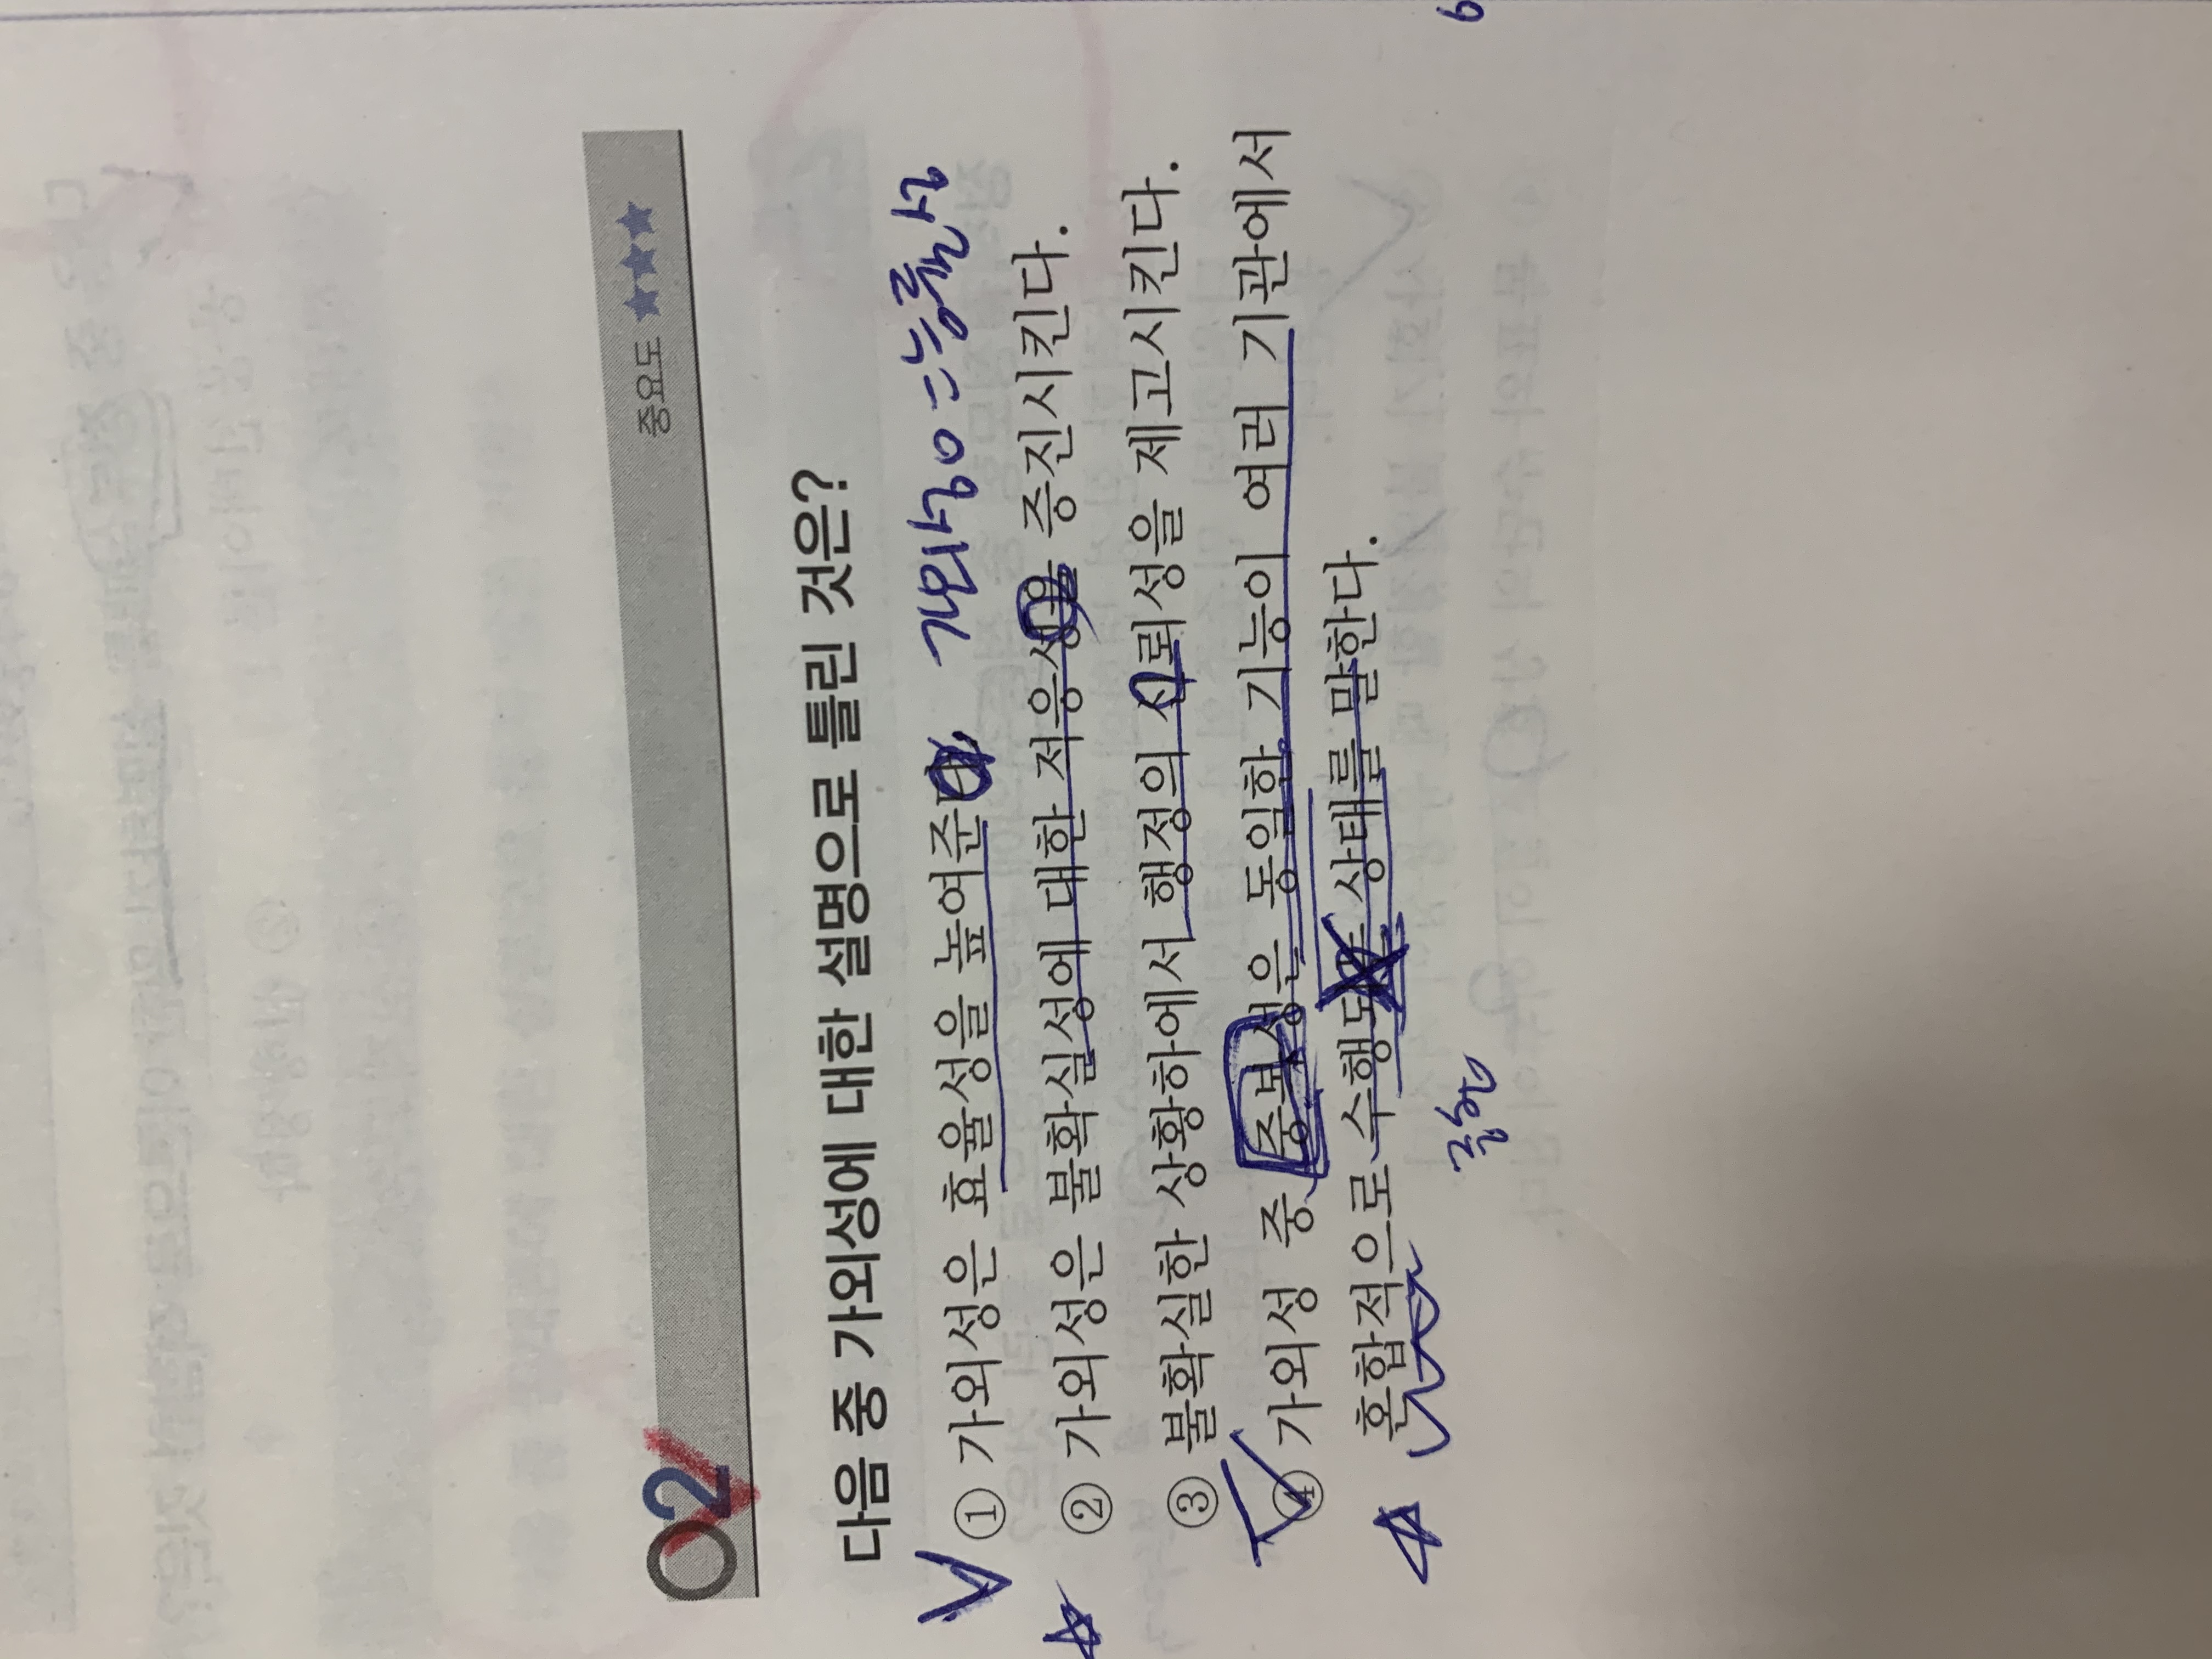 02
중요도 ★★★
다음 중 가외성에 대한 설명으로 틀린 것은?
가외성 =능률성
① 가외성은 효율성을 높여준다.
② 가외성은 불확실성에 대한 적응성을 증진시킨다.
③ 불확실한 상황하에서 행정의 신뢰성을 제고시킨다.
④ 가외성 중 중복성은 동일한 기능이 여러 기관에서
혼합적으로 수행되는 상태를 말한다.